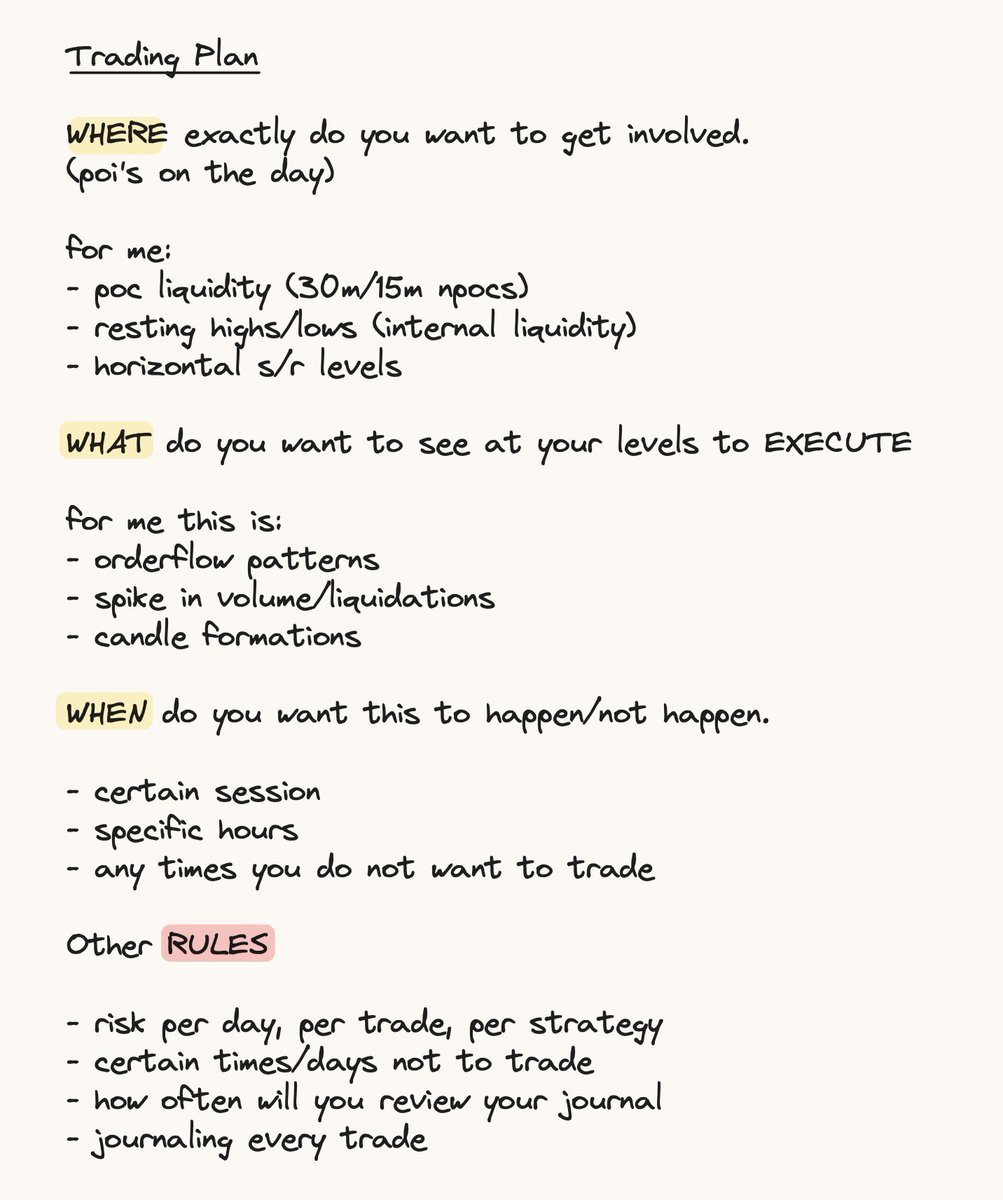 Trading Plan
WHERE exactly do you want to get involved.
(poi's on the day)
for me:
- poc liquidity (30m/15m npocs)
- resting highs/lows (internal liquidity)
- horizontal s/r levels
WHAT do you want to see at your levels to EXECUTE
for me this is:
- orderflow patterns
- spike in volume/liquidations
- candle formations
WHEN do you want this to happen/not happen.
- certain session
- specific hours
- any times you do not want to trade
Other RULES
- risk per day, per trade, per strategy
- certain times/days not to trade
- how often will you review your journal
- journaling every trade